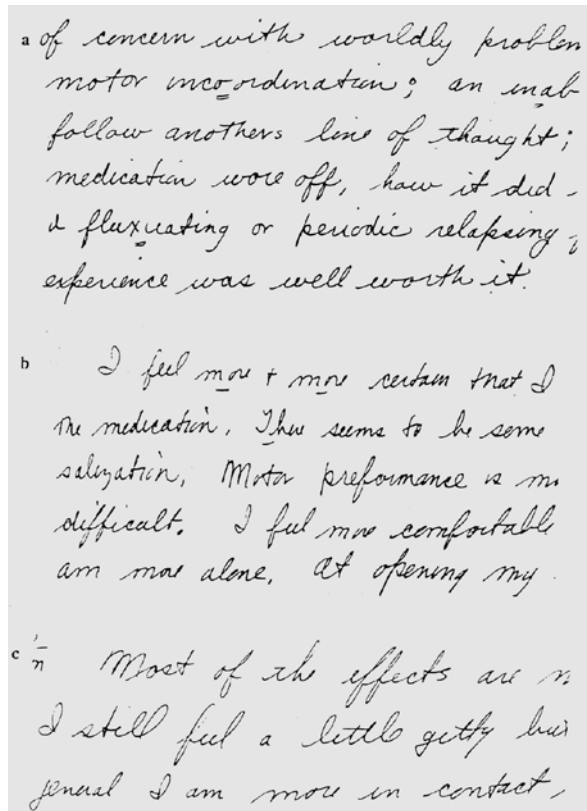 a of concern with worldly problem
motor incoordination; an inab
follow anothers line of thought;
medication wore off, how it did
& fluxuating or periodic relapsing
experience was well worth it.
b I feel more + more certain that I
the medication. There seems to be some
salization. Motor preformance is mo
difficalt. I feel more comfortable
am more alone. At opening my
c Most of the effects are n
I still feel a little getty
general I am more in contact,